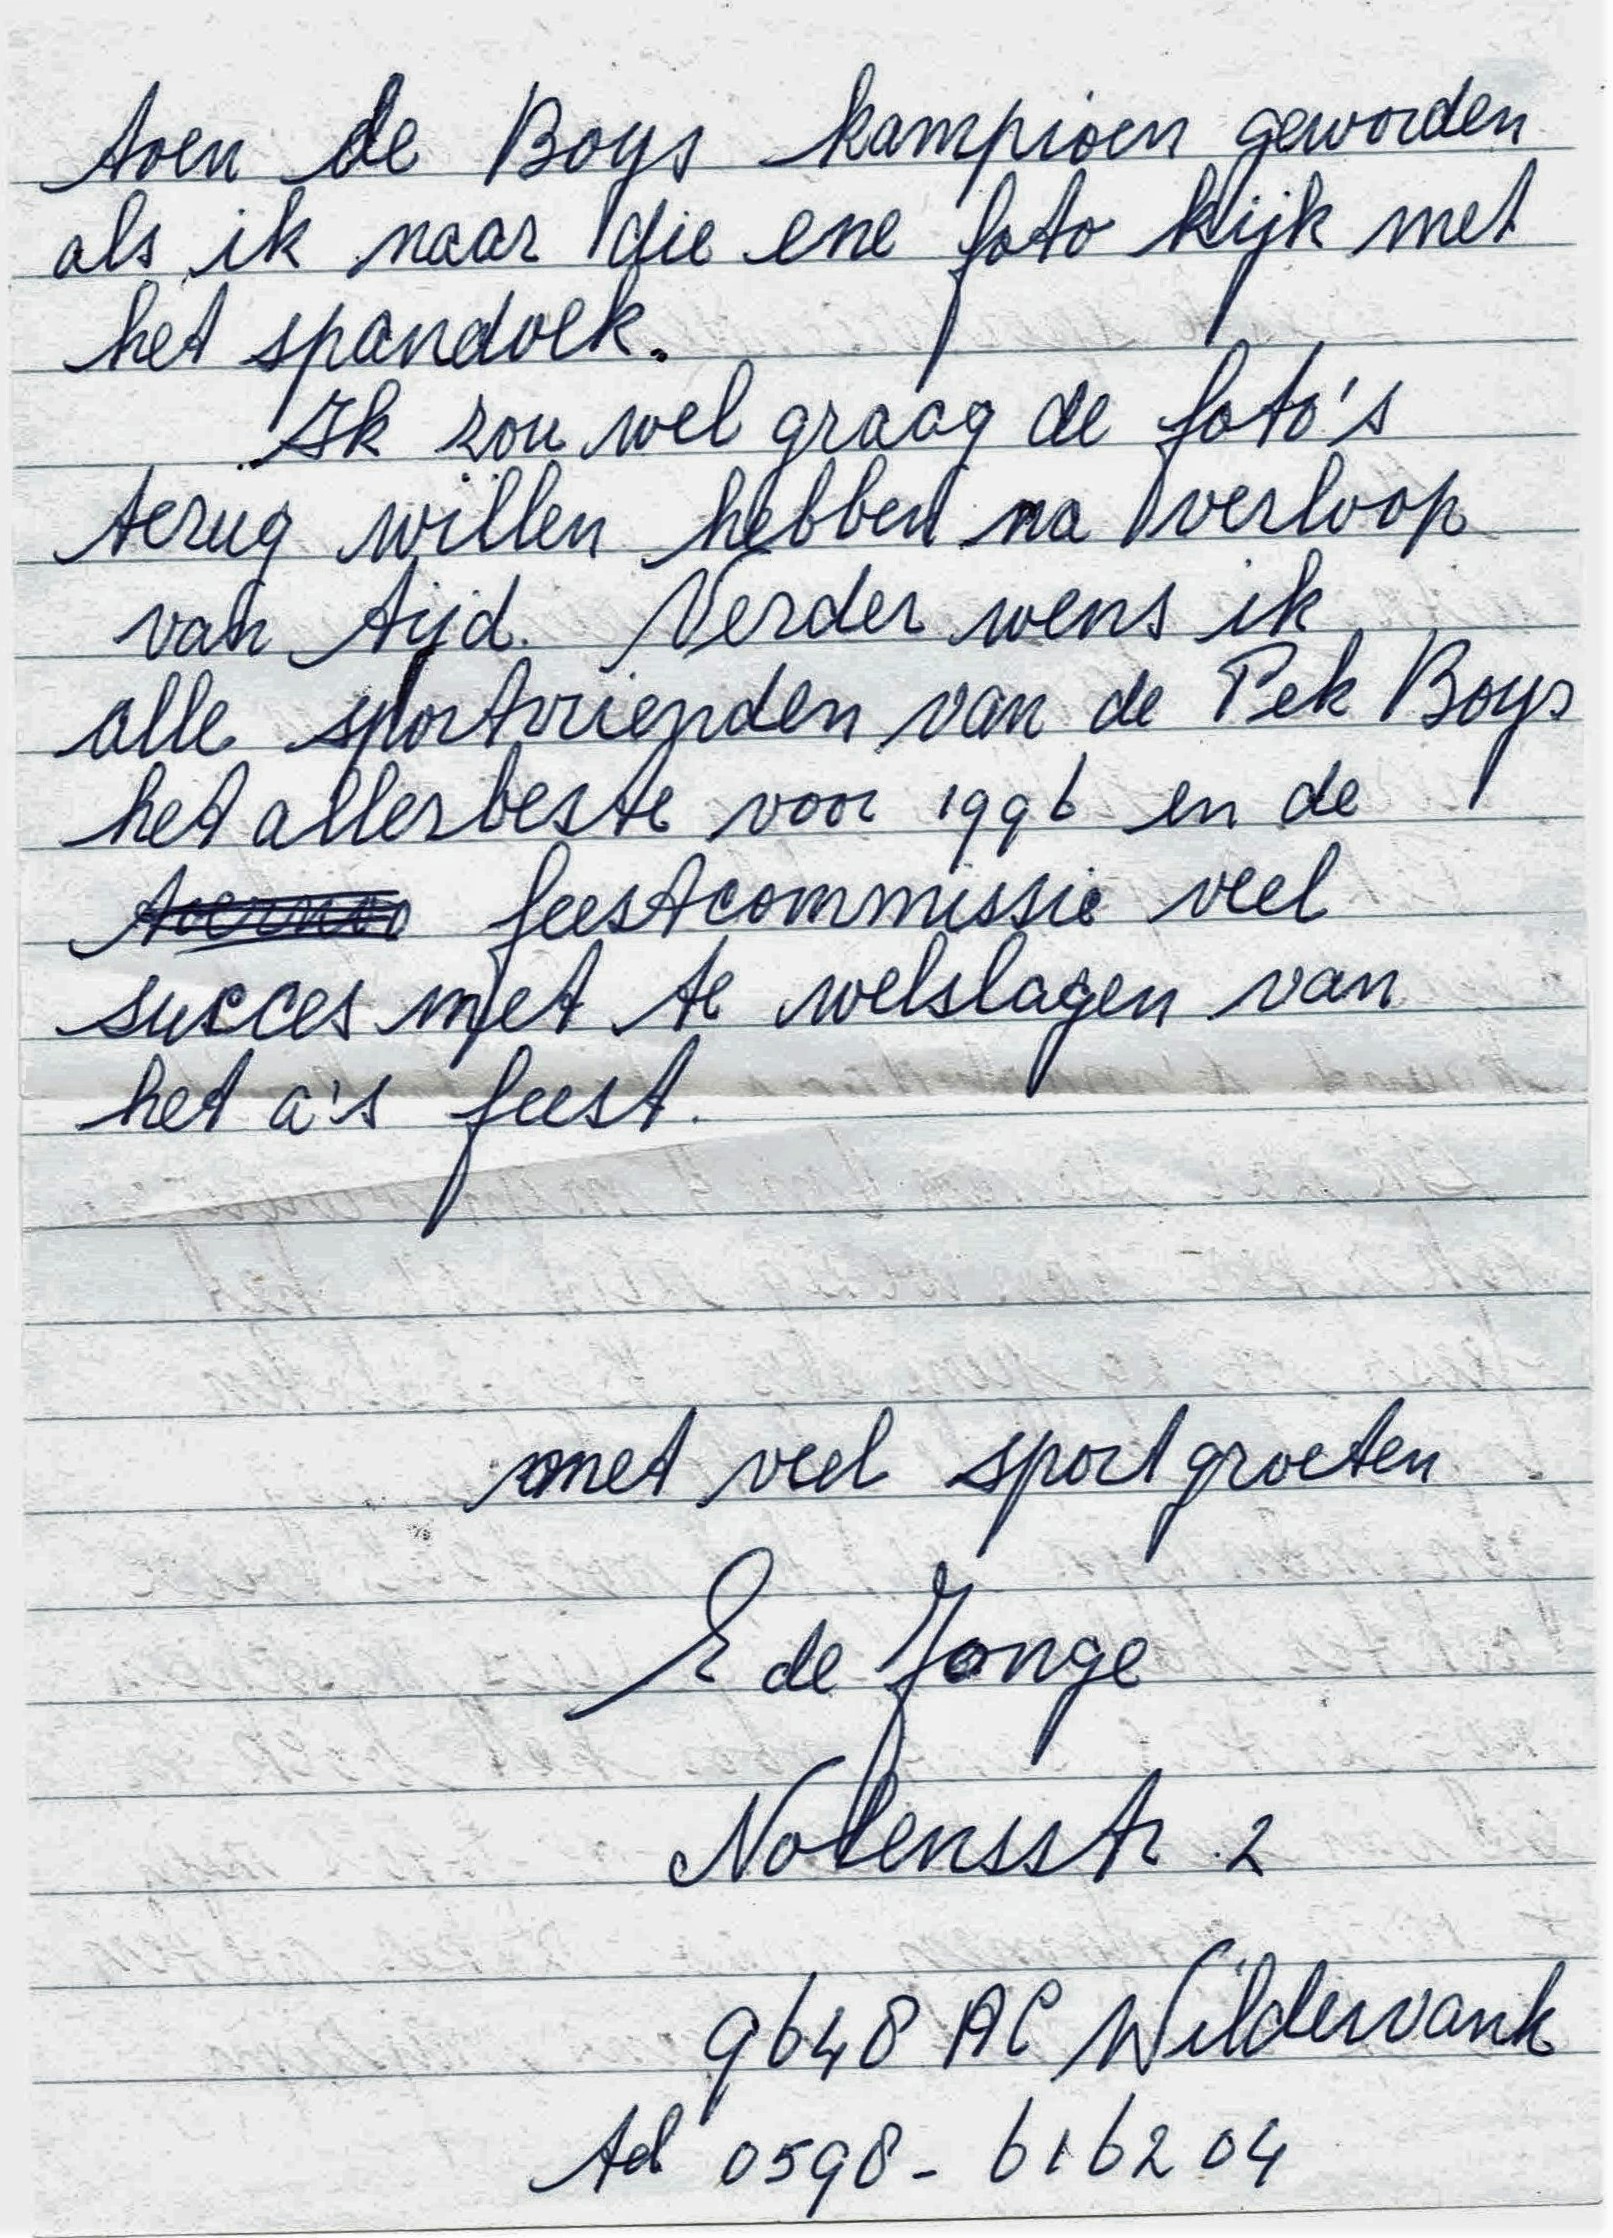 toen de Boys kampioen geworden
als ik naar die ene foto kijk met
het spandoek.
Ik zou wel graag de foto's
terug willen hebben na verloop
van tijd. Verder wens ik
alle sportvrienden van de Pek Boys
het allerbeste voor 1996 en de
feestcommissie veel
succes met te welslagen van
het a's feest.
met veel sportgroeten
E de Jonge
Nolensstr 2
9648 AC Wildervank
tel 0598-616204